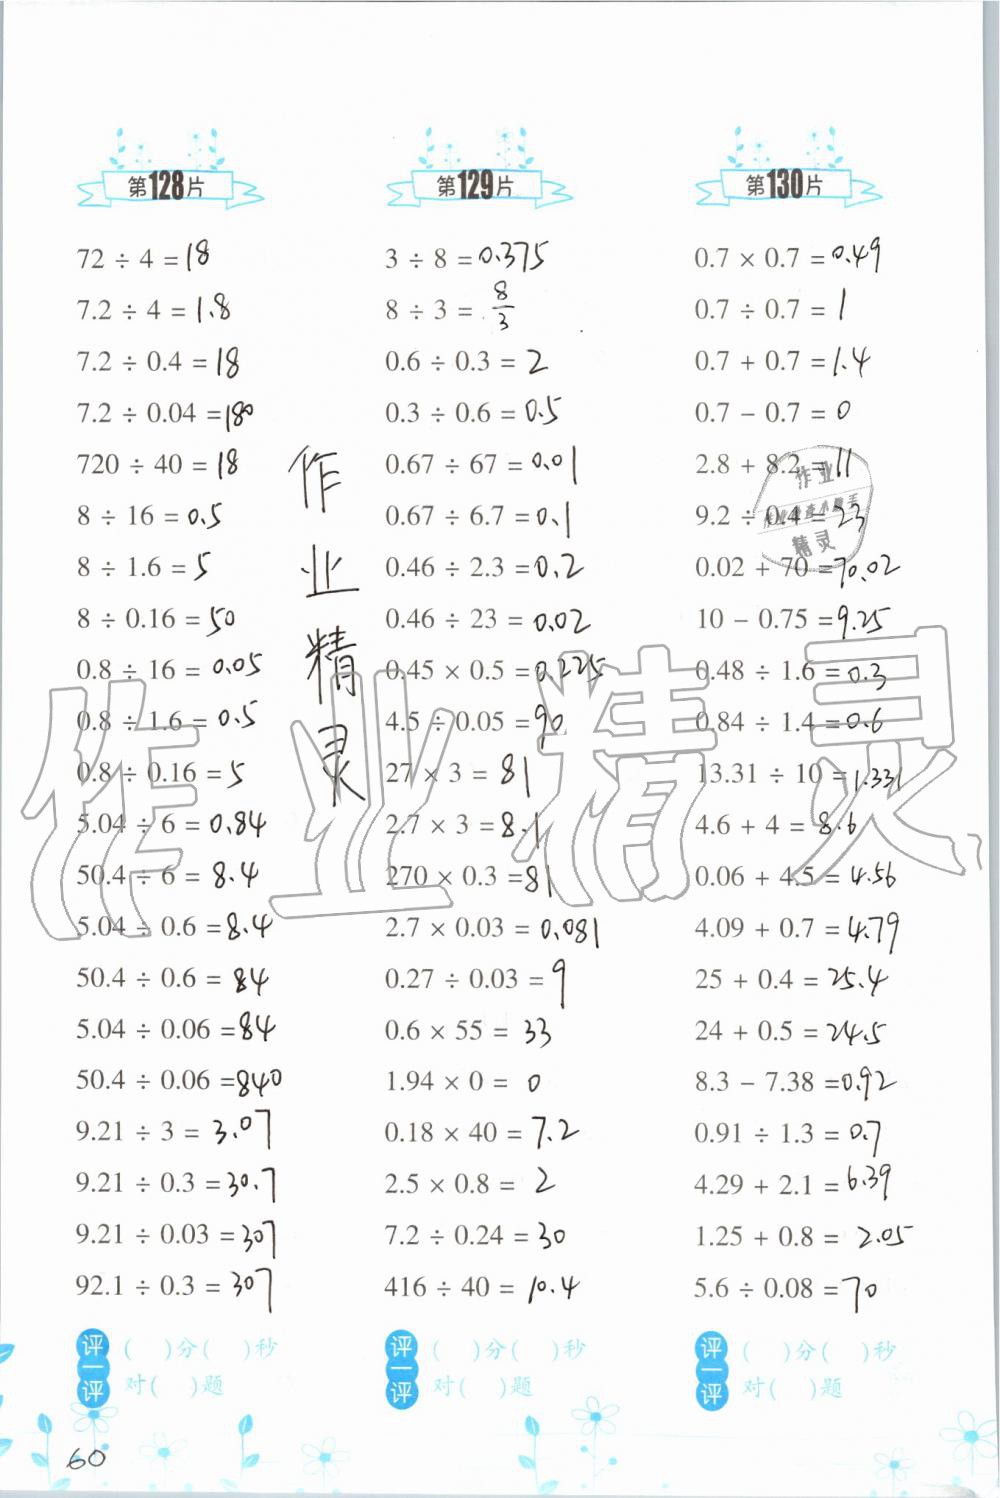 第128片
72 ÷ 4 = 18
7.2 ÷ 4 = 1.8
7.2 ÷ 0.4 = 18
7.2 ÷ 0.04 = 180
720 ÷ 40 = 18
8 ÷ 16 = 0.5
8 ÷ 1.6 = 5
8 ÷ 0.16 = 50
0.8 ÷ 16 = 0.05
0.8 ÷ 1.6 = 0.5
0.8 ÷ 0.16 = 5
5.04 ÷ 6 = 0.84
50.4 ÷ 6 = 8.4
5.04 ÷ 0.6 = 8.4
50.4 ÷ 0.6 = 84
5.04 ÷ 0.06 = 84
50.4 ÷ 0.06 = 840
9.21 ÷ 3 = 3.07
9.21 ÷ 0.3 = 30.7
9.21 ÷ 0.03 = 307
92.1 ÷ 0.3 = 307
评一评
( )分( )秒
对( )题
第129片
3 ÷ 8 = 0.375
8 ÷ 3 = 8/3
0.6 ÷ 0.3 = 2
0.3 ÷ 0.6 = 0.5
0.67 ÷ 67 = 0.01
0.67 ÷ 6.7 = 0.1
0.46 ÷ 2.3 = 0.2
0.46 ÷ 23 = 0.02
0.45 × 0.5 = 0.225
4.5 ÷ 0.05 = 90
27 × 3 = 81
2.7 × 3 = 8.1
270 × 0.3 = 81
2.7 × 0.03 = 0.081
0.27 ÷ 0.03 = 9
0.6 × 55 = 33
1.94 × 0 = 0
0.18 × 40 = 7.2
2.5 × 0.8 = 2
7.2 ÷ 0.24 = 30
416 ÷ 40 = 10.4
评一评
( )分( )秒
对( )题
第130片
0.7 × 0.7 = 0.49
0.7 ÷ 0.7 = 1
0.7 + 0.7 = 1.4
0.7 - 0.7 = 0
2.8 + 8.2 = 11
9.2 ÷ 0.4 = 23
0.02 + 70 = 70.02
10 - 0.75 = 9.25
0.48 ÷ 1.6 = 0.3
0.84 ÷ 1.4 = 0.6
13.31 ÷ 10 = 1.331
4.6 + 4 = 8.6
0.06 + 4.5 = 4.56
4.09 + 0.7 = 4.79
25 + 0.4 = 25.4
24 + 0.5 = 24.5
8.3 - 7.38 = 0.92
0.91 ÷ 1.3 = 0.7
4.29 + 2.1 = 6.39
1.25 + 0.8 = 2.05
5.6 ÷ 0.08 = 70
评一评
( )分( )秒
对( )题
作业精灵
作业精灵
作业
精灵
60